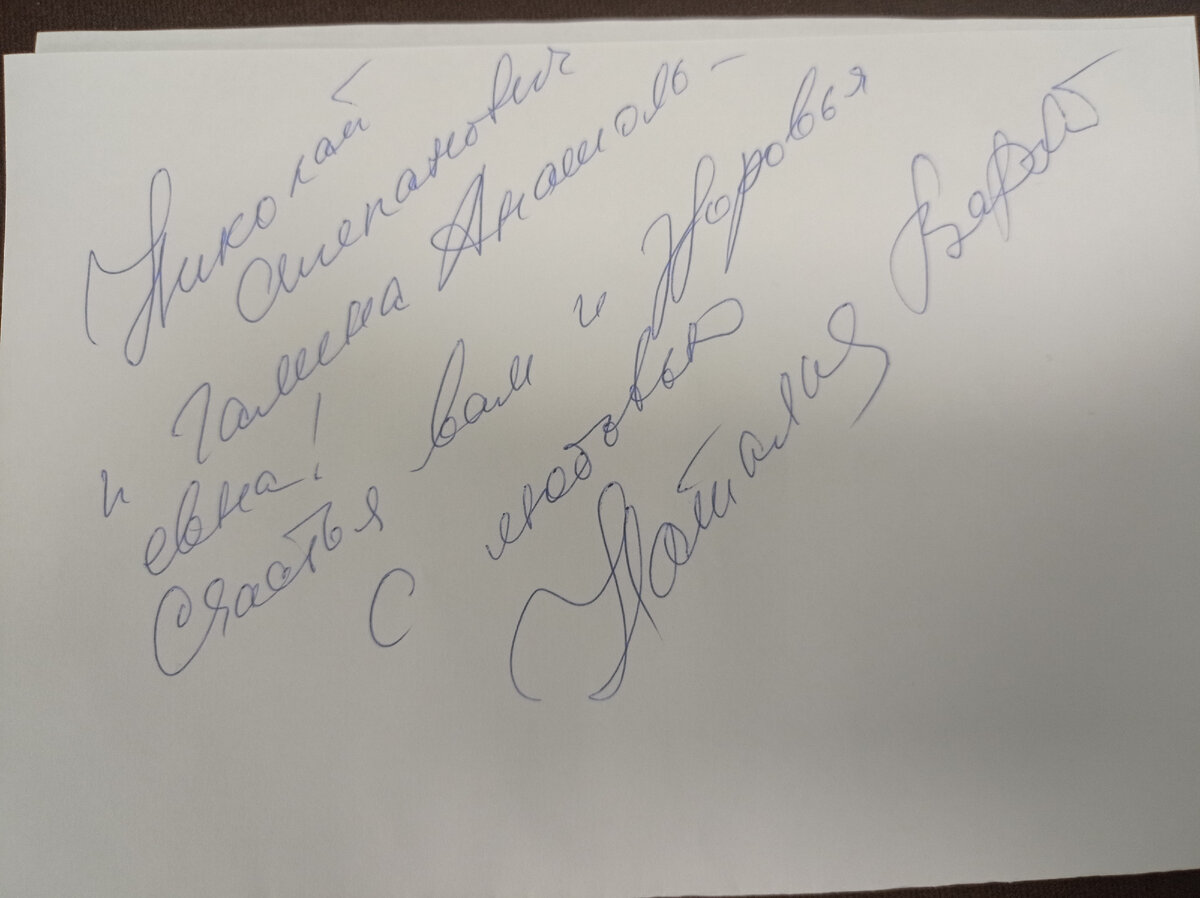 Николай
Степанович
и Галина Анатоль-
евна!
Счастья вам и Здоровья
С любовью
Наталия Варлей